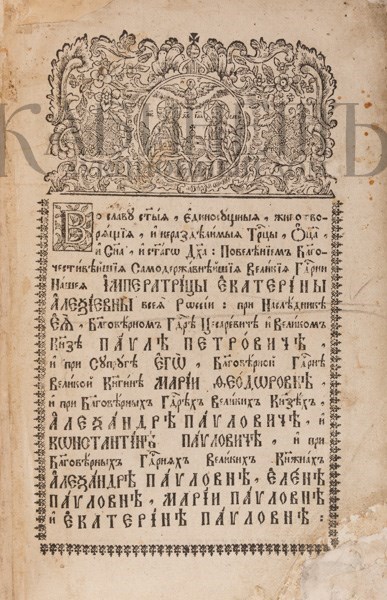 КАБИНЕТЪ
Во славу ст҃ыѧ, єдиносущныѧ, животво-
рѧщїѧ, и нераздѣлимыѧ Трⷪ҇цы, Ѻ҆ц҃а
и҆ Сн҃а, и҆ ст҃агѡ Дх҃а: Повелѣнїемъ Благо-
честивѣйшїѧ Самодержавнѣйшїѧ Великїѧ Гдⷭ҇рни
Нашеѧ І҆МПЕРАТРИЦЫ Є҆КАТЕРИНЫ
А҆ЛЕѮІЕВНЫ всеѧ Рѡссїи: при Наслѣдникѣ
Є҆Ѧ̀, Благовѣрномъ Гдⷭ҇рѣ Цесаревичѣ и҆ Великомъ
Кнѧзѣ ПАѴЛѢ ПЕТРОВИЧѢ,
и҆ при Супругѣ Є҆ГѠ̀, Благовѣрной Гдⷭ҇рнѣ
Великой Кнѧгинѣ МАРІИ ѲЕОДѠРОВНѢ,
и҆ при Благовѣрныхъ Гдⷭ҇рѣхъ Великихъ Кнѧзехъ,
А҆ЛЕѮАНДРѢ ПАѴЛОВИЧѢ, и҆
КѠНСТАНТІНѢ ПАѴЛОВИЧѢ, и҆ при
Благовѣрныхъ Гдⷭ҇рнѧхъ Великихъ Кнѧжнахъ
А҆ЛЕѮАНДРѢ ПАѴЛОВНѢ, Є҆ЛЕНѢ
ПАѴЛОВНѢ, МАРІИ ПАѴЛОВНѢ
и҆ Є҆КАТЕРІНѢ ПАѴЛОВНѢ: